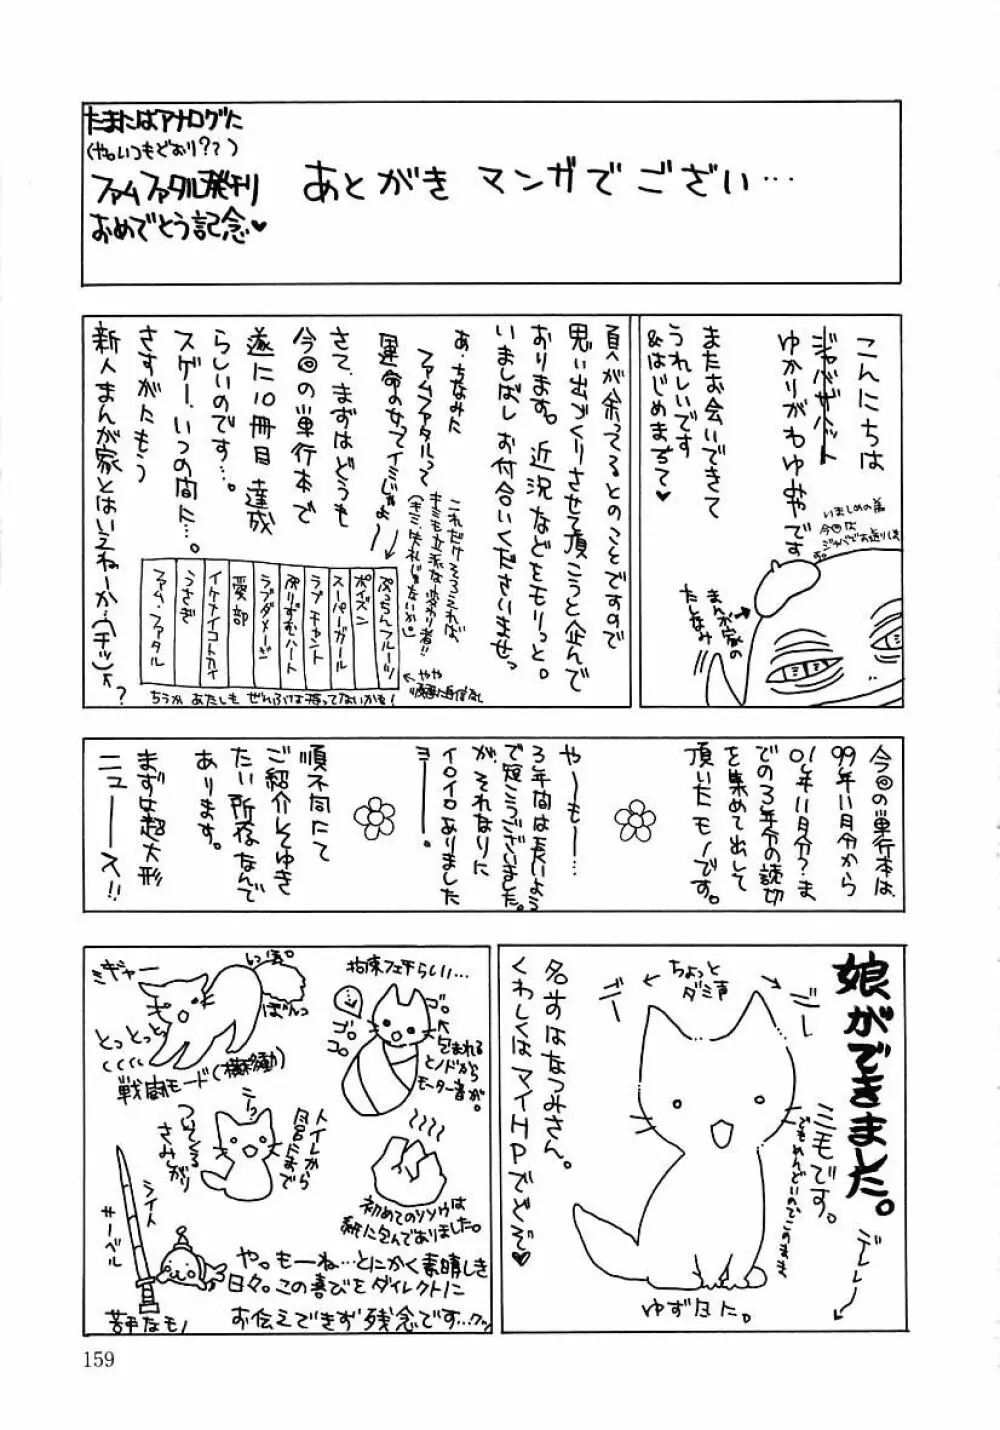 たまにはアナログに
(やっいつもどおり??)
ファムファタル発刊
おめでとう記念♥
あとがきマンガでござい…
こんにちは
ジャバザハット
ゆかりがわゆやです
またお会いできて
うれしいです
&はじめまちて♥
いましめの為
今回は
まんが家の
たしなみ
頁が余ってるとのことですので
思い出づくりさせて頂こうと企んで
おります。近況などをモリっと。
いましばしお付合いくださいませっ
あ、ちなみに
ファムファタルって
運命の女ってイミじゃよー
これだけそろってれば、
キミも立派な変わり者!!
(キミ、失礼じゃないか。)
さて、まずはどうも
今回の単行本で
遂に10冊目達成
らしいのです…。
スゲー、いつの間に…。
さすがにもう
新人まんが家とはいえねーか…(チッ)
?
ぷっちんフルーツ
ポイズン
スーパーガール
ラブチャント
ぷりずむハート
ラブダメージ
愛部
イケナイコトカイ
うさぎ
ファム・ファタル
やや
ちうかあたしもぜんぶは持ってないかも!
今回の単行本は、
99年11月分から
01年11月分?ま
での3年分の読切
を集めて出して
頂いたモノです。
や〜も〜…
3年間は長いよう
で短こうございました。
が、それなりに
イロイロありました
ヨー。
順不同にて
ご紹介してゆき
たい所存なんで
あります。
まずは超大形
ニュース!!
娘ができました。
ちょっと
ダミ声
ミモです。
でもめんどいのでこのまま
デレレレ
ゆずなに。
名はなつみさん。
くわしくはマイHPでどぞ♥
指棟フェチらしい…
ゴロゴロ
ゴ。
包まれる
とノドから
モーター音が。
ミギャー
しっぽ。
ぼんっ
とっとっとっ
戦闘モード(横移動)
ニーっ
トイレから
風呂にまで
ついてくる
さみしがり
初めてのソソウは
紙に包んでありました。
ライト
サーベル
苦手なモノ
や。も〜ね…とにかく素晴しき
日々。この喜びをダイレクトに
お伝えできず残念です…クッ
159